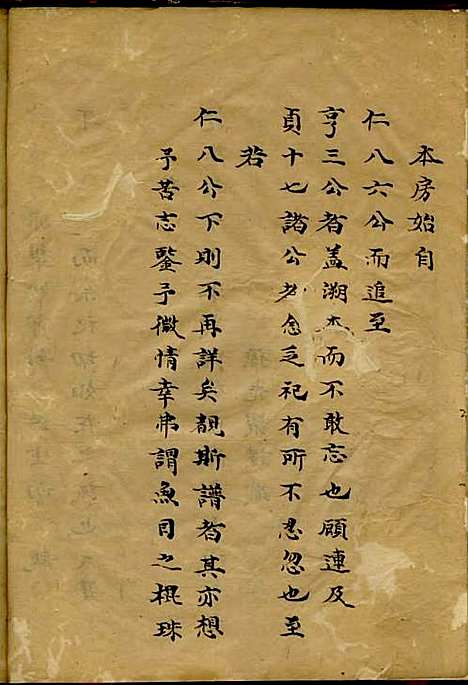 本房始自
仁八六公而追至
亨三公者蓋溯本而不敢忘也顧連及
貞十七諸公者念乏祀有所不忍忽也至
若
仁八公下則不再詳矣覩斯譜者其亦想
予苦志鑒予微情幸弗謂魚目之棍珠